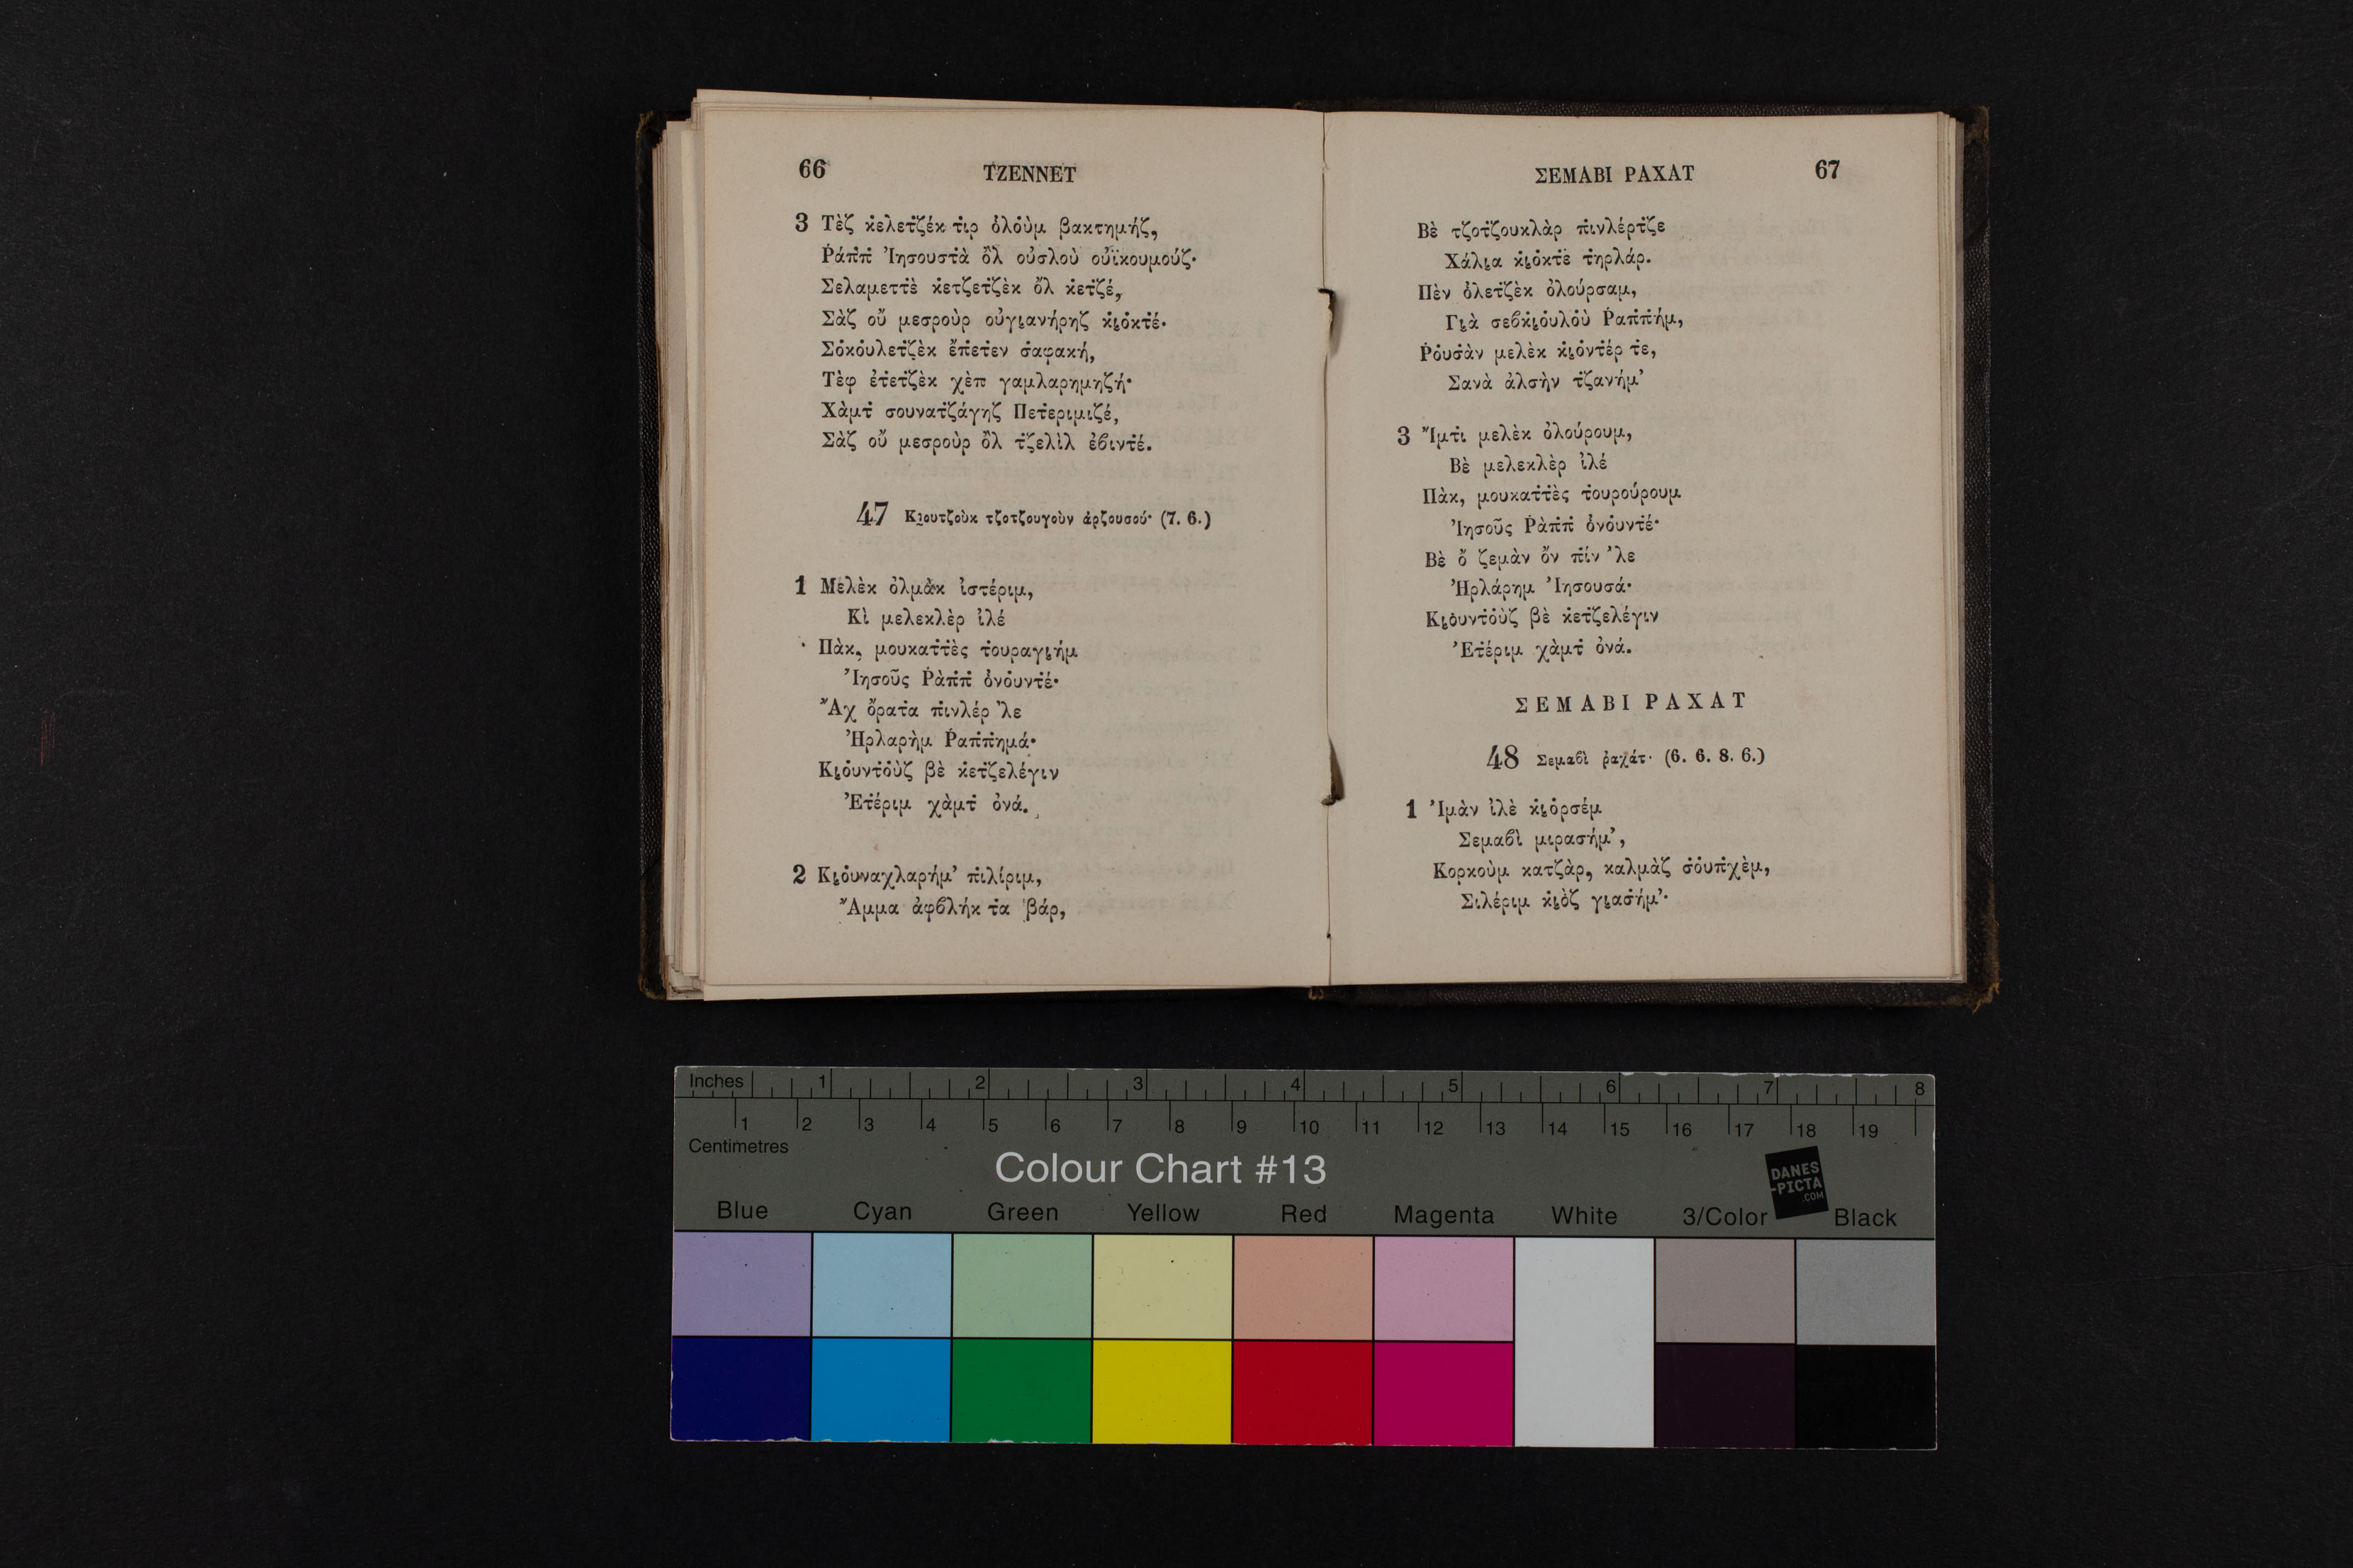 66 ΤΖΕΝΝΕΤ
3 Τὲζ κ̇ελετζ̇έκ τ̇ιρ ὀλο̇ὺμ βακτημήζ,
Ῥάπ̇π̇ Ἰησουστ̇ὰ ὂλ οὐσλοὺ οὐϊκουμούζ·
Σελαμεττ̇ὲ κ̇ετζετζ̇ὲκ ὂλ κ̇ετζέ,
Σὰζ οὔ μεσροὺρ οὐγι̯ανήρηζ κ̇ι̯ο̇κτέ·
Σο̇κο̇υλετζ̇ὲκ ἔπ̇ετ̇εν σ̇αφακή,
Τὲφ ἐτ̇ετζ̇ὲκ χὲπ γαμλαρημηζή·
Χὰμτ̇ σουνατζ̇άγηζ Πετ̇εριμιζέ,
Σὰζ οὔ μεσροὺρ ὂλ τζ̇ελὶλ ἐβιντ̇έ.
47 Κι̯ουτζοὺκ τζοτζουγοὺν ἀρζουσού· (7. 6.)
1 Μελὲκ ὀλμὰκ ἰστέριμ,
Κὶ μελεκλὲρ ἰλέ
Πὰκ, μουκατ̇τ̇ὲς τ̇ουραγι̯ήμ
Ἰησοῦς Ῥὰπ̇π̇ ὀνο̇υντ̇έ·
Ἂχ ὄρατ̇α π̇ινλέρ ’λε
Ἠρλαρὴμ Ῥαπ̇π̇ημά·
Κι̯ο̇υντ̇ο̇ὺζ βὲ κ̇ετζ̇ελέγιν
Ἐτ̇έριμ χὰμτ̇ ὀνά.
2 Κι̯ο̇υναχλαρήμ’ π̇ιλίριμ,
Ἄμμα ἀφβλήκ τ̇α βάρ,
ΣΕΜΑΒΙ ΡΑΧΑΤ 67
Βὲ τζοτζ̇ουκλὰρ π̇ινλέρτζ̇ε
Χάλι̯α κ̇ι̯ο̇κτ̇ὲ τ̇ηρλάρ.
Πὲν ὀλετζ̇ὲκ ὀλούρσαμ,
Γι̯ὰ σεβκ̇ι̯ο̇υλο̇ὺ Ῥαπ̇π̇ήμ,
Ῥο̇υσ̇ὰν μελὲκ κ̇ι̯ο̇ντ̇έρ τ̇ε,
Σανὰ ἀλσὴν τζ̇ανήμ’
3 Ἴμτ̇ι μελὲκ ὀλούρουμ,
Βὲ μελεκλὲρ ἰλέ
Πὰκ, μουκατ̇τ̇ὲς τ̇ουρούρουμ
Ἰησοῦς Ῥὰπ̇π̇ ὀνο̇υντ̇έ·
Βὲ ὄ ζεμὰν ὄν π̇ίν ’λε
Ἠρλάρημ Ἰησουσά·
Κι̯ο̇υντ̇ο̇ὺζ βὲ κ̇ετζ̇ελέγιν
Ἐτ̇έριμ χὰμτ̇ ὀνά.
ΣΕΜΑΒΙ ΡΑΧΑΤ
48 Σεμαβὶ ῥαχάτ· (6. 6. 8. 6.)
1 Ἰμὰν ἰλὲ κ̇ι̯ο̇ρσέμ
Σεμαβὶ μιρασήμ’,
Κορκοὺμ κατζὰρ, καλμὰζ σ̇ο̇υπ̇χὲμ,
Σιλέριμ κ̇ι̯ὸ̇ζ γι̯ασ̇ήμ’·
Inches 1 2 3 4 5 6 7 8
1 2 3 4 5 6 7 8 9 10 11 12 13 14 15 16 17 18 19
Centimetres
Colour Chart #13
DANES
-PICTA
.COM
Blue Cyan Green Yellow Red Magenta White 3/Color Black